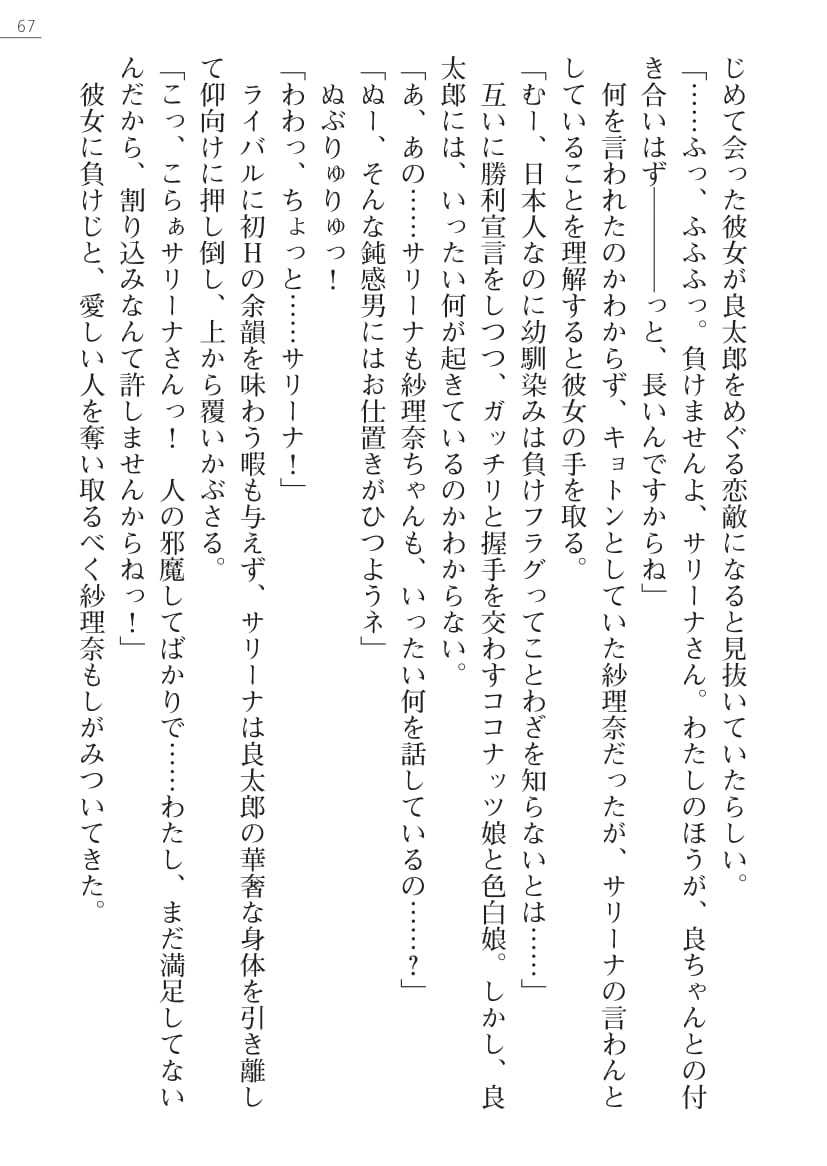 67
じめて会った彼女が良太郎をめぐる恋敵になると見抜いていたらしい。
「……ふっ、ふふふっ。負けませんよ、サリーナさん。わたしのほうが、良ちゃんとの付
き合いはず――――っと、長いんですからね」
何を言われたのかわからず、キョトンとしていた紗理奈だったが、サリーナの言わんと
していることを理解すると彼女の手を取る。
「むー、日本人なのに幼馴染みは負けフラグってことわざを知らないとは……」
互いに勝利宣言をしつつ、ガッチリと握手を交わすココナッツ娘と色白娘。しかし、良
太郎には、いったい何が起きているのかわからない。
「あ、あの……サリーナも紗理奈ちゃんも、いったい何を話しているの……？」
「ぬー、そんな鈍感男にはお仕置きがひつようネ」
ぬぶりゅりゅっ！
「わわっ、ちょっと……サリーナ！」
ライバルに初Hの余韻を味わう暇も与えず、サリーナは良太郎の華奢な身体を引き離し
て仰向けに押し倒し、上から覆いかぶさる。
「こっ、こらぁサリーナさんっ！　人の邪魔してばかりで……わたし、まだ満足してない
んだから、割り込みなんて許しませんからねっ！」
彼女に負けじと、愛しい人を奪い取るべく紗理奈もしがみついてきた。